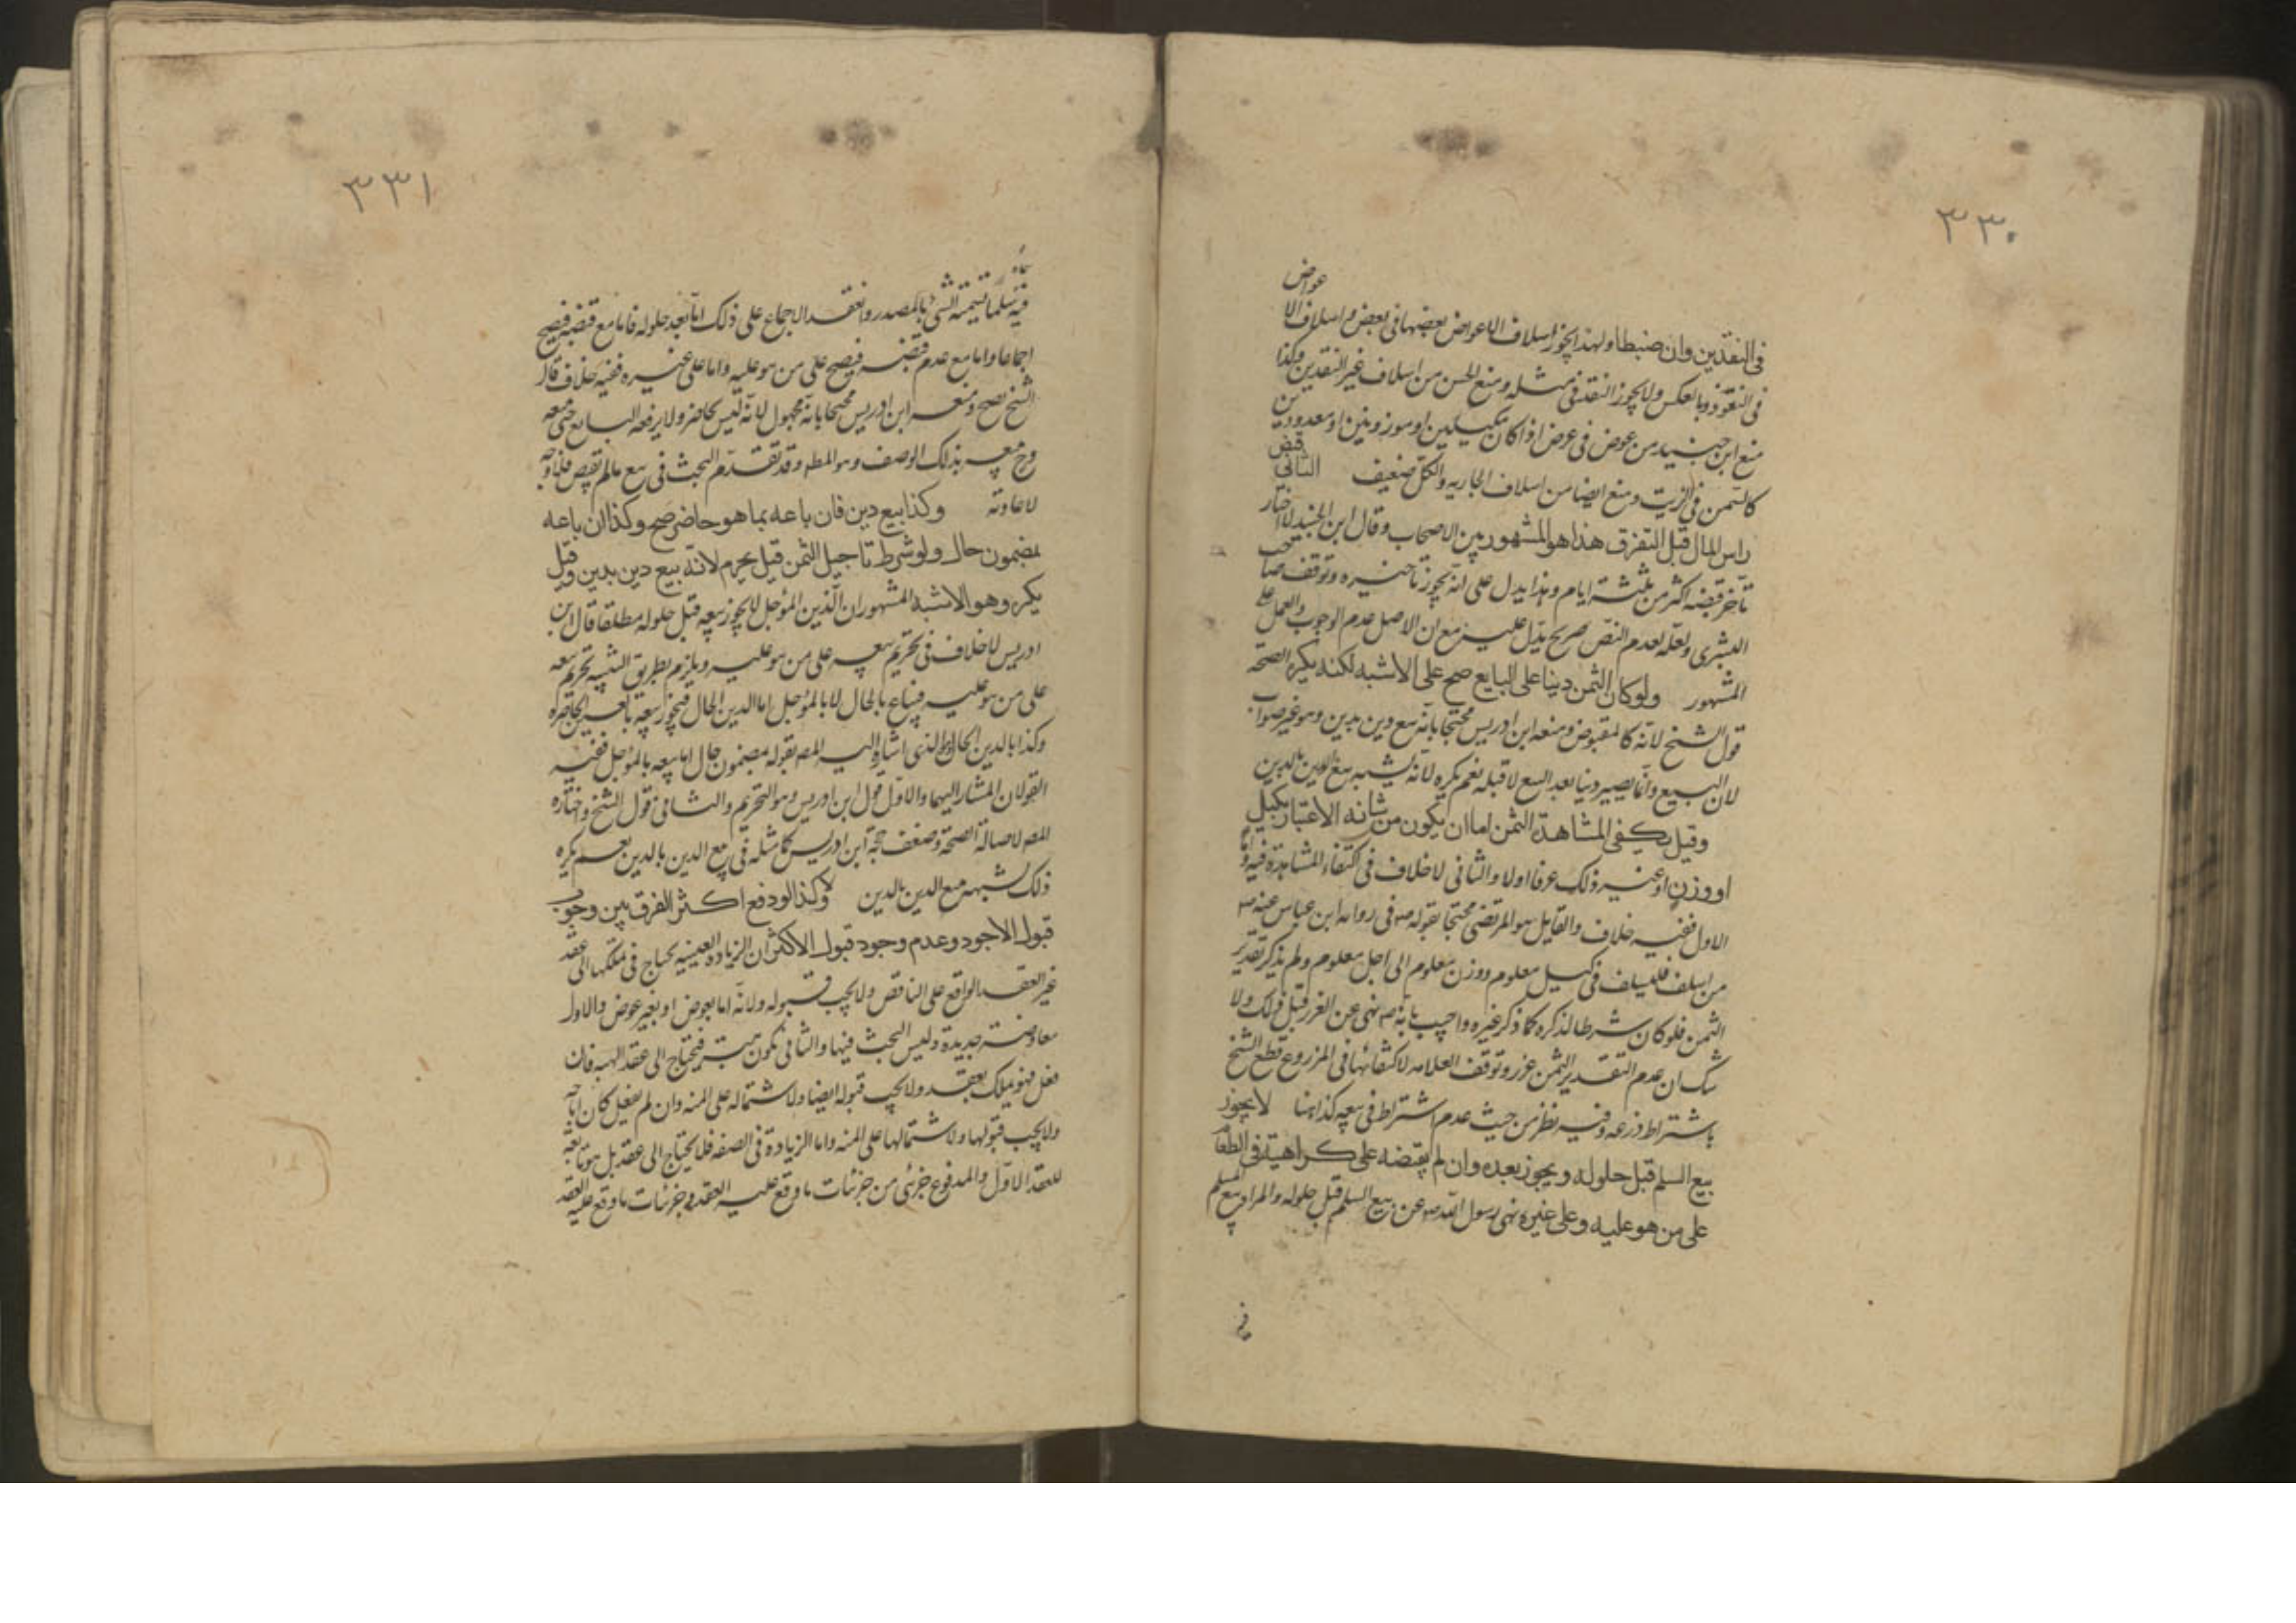 ٣٣٠
عواض
فی النقدین وان ضبطا ولهذا یجوز اسلاف الاعواض بعضها فی بعض واسلاف الا
فی النقود وبالعکس ولا یجوز النقد فی مثله ومنع الحسن من اسلاف غیر النقدین وکذا
منع ابن جنید من عوض فی عرض اذا کانا مکیلین او موزونین او معدودین
کالسمن فی الزیت ومنع ایضا من اسلاف الجاریه والکل ضعیف الثانی قبض
راس المال قبل التفرق هذا هو المشهور بین الاصحاب وقال ابن الجنید لا اختار
تأخر قبضه اکثر من ثلثة ایام وهذا یدل علی انه یجوز تاخیره وتوقف صاحب
البشری ولعله لعدم النص صریح یدل علیه مع ان الاصل عدم الوجوب والعمل علی
المشهور ولو کان الثمن دینا علی البایع صح علی الاشبه لکنه یکره الصحة
قول الشیخ لانه کالمقبوض ومنعه ابن ادریس محتجا بانه بیع دین بدین وهو غیر صواب
لان المبیع وانما یصیر دینا بعد البیع لا قبله نعم یکره لانه یشبه بیع الدین بالدین
وقیل یکفی المشاهدة الثمن اما ان یکون من شانه الاعتبار بکیل
او وزن او غیره ذلک عرفا اولا والثانی لا خلاف فی اکتفاء المشاهدة فیه واما
الاول ففیه خلاف والقایل هو المرتضی محتجا بقوله ص فی روایة ابن عباس عنه ص
من اسلف فلیسلف فی کیل معلوم ووزن معلوم الی اجل معلوم ولم یذکر تقدیر
الثمن فلو کان شرطا لذکره کما ذکر غیره واجیب بانه ص نهی عن الغرر قبل ذلک ولا
شک ان عدم التقدیر الثمن غرر وتوقف العلامه لاکتفائها فی المزروع قطع الشیخ
باشتراط ذرعه وفیه نظر من حیث عدم اشتراط فی بیعه کذا هنا لا یجوز
بیع السلم قبل حلوله ویجوز بعده وان لم یقبضه علی کراهیة فی الطعام
علی من هو علیه وعلی غیره نهی رسول الله ص عن بیع السلم قبل حلوله والمراد بیع المسلم
فیه
٣٣١
فیه سلما تسمیة الشئ بالمصدر وانعقد الاجماع علی ذلک اما بعد حلوله فاما مع قبضه فیصح
اجماعا واما مع عدم قبضه فیصح علی من هو علیه واما علی غیره ففیه خلاف قال
الشیخ یصح ومنعه ابن ادریس محتجا بانه مجهول لانه لیس بحاضر ولا یرفعه البایع حتی معه
وح معه بذلک الوصف وهو المطه وقد تقدم البحث فی بیع مالم یقبض فلا وجه
لاعادته وکذا بیع دین فان باعه بما هو حاضر صح وکذا ان باعه
بمضمون حال ولو شرط تاجیل الثمن قیل یحرم لانه بیع دین بدین وقیل
یکره وهو الاشبه المشهور ان الدین المؤجل لا یجوز بیعه قبل حلوله مطلقا قال ابن
ادریس لا خلاف فی تحریم بیعه علی من هو علیه ویلزم بطریق التنبیه تحریم بیعه
علی من هو علیه فیباع بالحال لا بالمؤجل اما الدین الحال فیجوز بیعه بالعین الحاضره
وکذا بالدین الحال والذی اشار الیه المصه بقوله مضمون حال اما بیعه بالمؤجل ففیه
القولان المشار الیهما والاول قول ابن ادریس وهو التحریم والثانی قول الشیخ واختاره
المصه لاصالة الصحة وضعف حجة ابن ادریس کما مثله فی بیع الدین بالدین نعم یکره
ذلک لشبهه ببیع الدین بالدین وکذا لو دفع اکثر الفرق بین وجوب
قبول الاجود وعدم وجود قبول الاکثر ان الزیاده العینیه یحتاج فی تملکها الی عقد
غیر العقد الواقع علی الناقص ولا یجب قبوله ولانه اما بعوض او بغیر عوض والاول
معاوضة جدیدة ولیس البحث فیها والثانی تکون هبة فیحتاج الی عقد الهبه فان
فعل فهو یملک بعقد ولا یجب قبوله ایضا ولاشتماله علی المنه وان لم یفعل کان اباحه
ولا یجب قبولها ولاشتمالها علی المنه واما الزیادة فی الصفه فلا یحتاج الی عقد بل هو تابعة
للعقد الاول والمدفوع جزئی من جزئیات ما وقع علیه العقد وجزئیات ما وقع علیه العقد